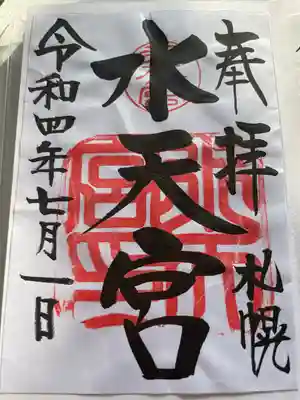 奉拝 札幌
水天宮
令和四年七月一日